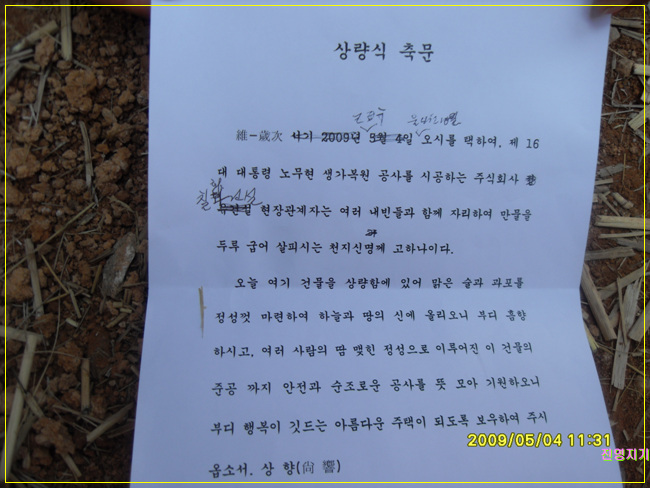 상량식 축문
維-歲次 서기 2009년 5월 4일 오시를 택하여, 제 16
대 대통령 노무현 생가복원 공사를 시공하는 주식회사
현장관계자는 여러 내빈들과 함께 자리하여 만물을
두루 굽어 살피시는 천지신명께 고하나이다.
오늘 여기 건물을 상량함에 있어 맑은 술과 과포를
정성껏 마련하여 하늘과 땅의 신에 올리오니 부디 흠향
하시고, 여러 사람의 땀 맺힌 정성으로 이루어진 이 건물의
준공 까지 안전과 순조로운 공사를 뜻 모아 기원하오니
부디 행복이 깃드는 아름다운 주택이 되도록 보우하여 주시
옵소서. 상 향(尙 響)
2009/05/04 11:31
진영지기